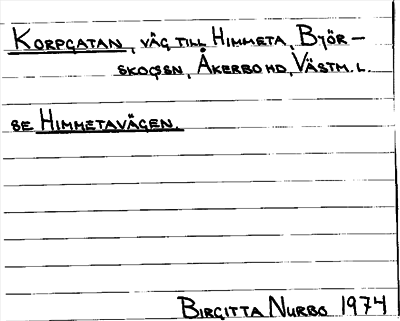 KORPGATAN, VÄG TILL HIMMETA, BJÖR-
SKOGSSN, ÅKERBO HD, VÄSTM. L.
SE HIMMETAVÄGEN.
BIRGITTA NURBO 1974